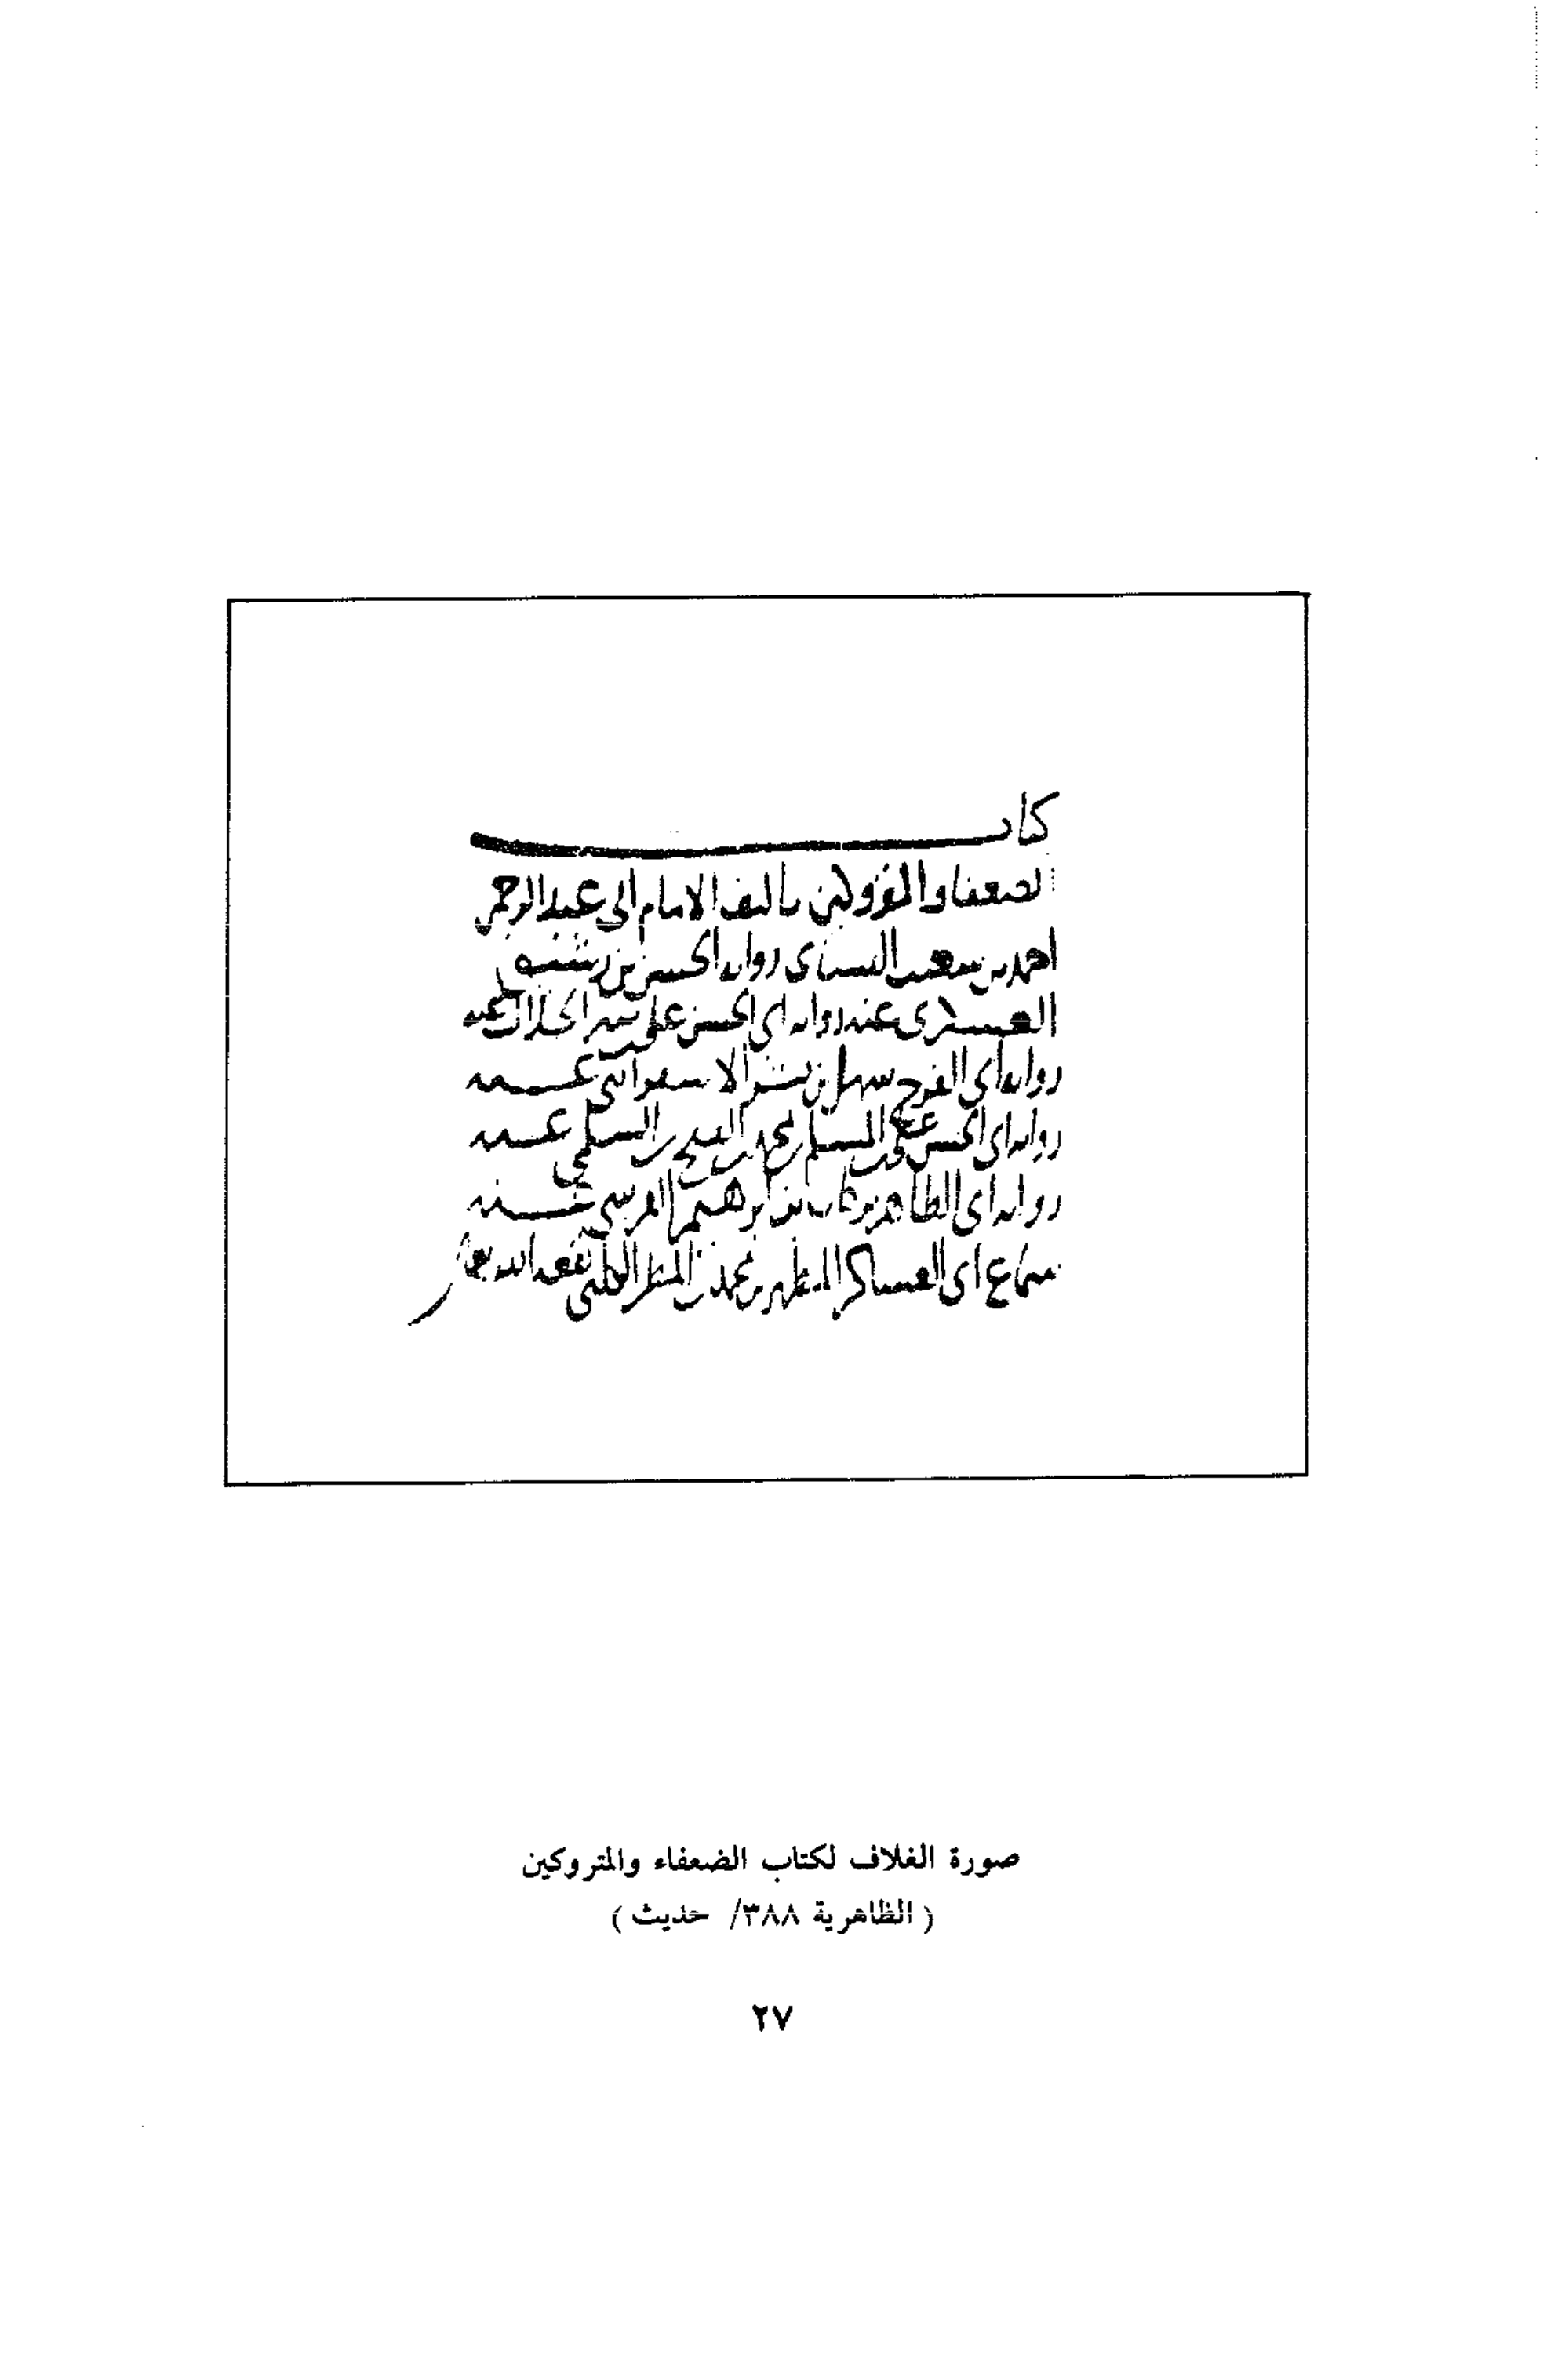 كتاب
الضعفا والمتروكين تاليف الامام ابي عبد الرحمن
احمد بن شعيب النساي رواية الحسن بن رشيق
العسكري عنه رواية ابي الحسن علي بن منير الخلال عنه
رواية ابي الفرج سهل بن بشر الاسفرايني عنه
رواية ابي الحسن علي بن المسلم بن محمد بن الفتح السلمي عنه
رواية ابي الطاهر بركات بن ابرهيم القرشي عنه
سماع ابي العساكر المظهر بن محمد بن المظفر الكلبي نفعه الله بها
صورة الغلاف لكتاب الضعفاء والمتروكين
( الظاهرية ٣٨٨/ حديث )
٢٧